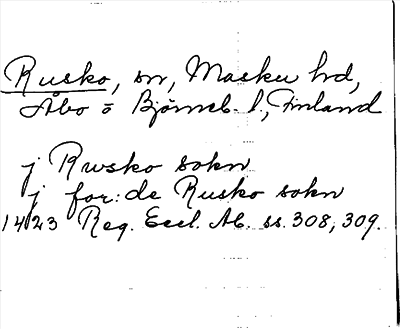 Rusko, sn, Masku hd,
Åbo o Björneb. l., Finland
j Rwsko sokn
j for:de Rusko sokn
1423 Reg. Eccl. Ab. ss. 308, 309.